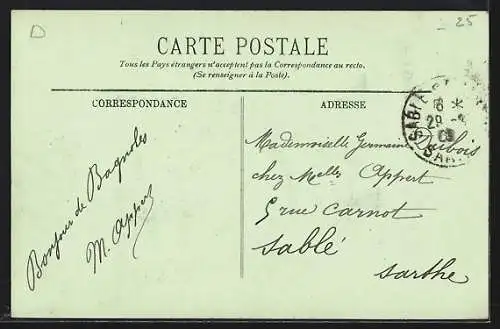 D
25
CARTE POSTALE
Tous les Pays étrangers n'acceptent pas la Correspondance au recto.
(Se renseigner à la Poste).
CORRESPONDANCE
ADRESSE
Bonjour de Bagnoles
M. Appert
Mademoiselle Germaine Dubois
chez Melles Appert
5 rue Carnot
Sablé
Sarthe
SABLÉ
6
29